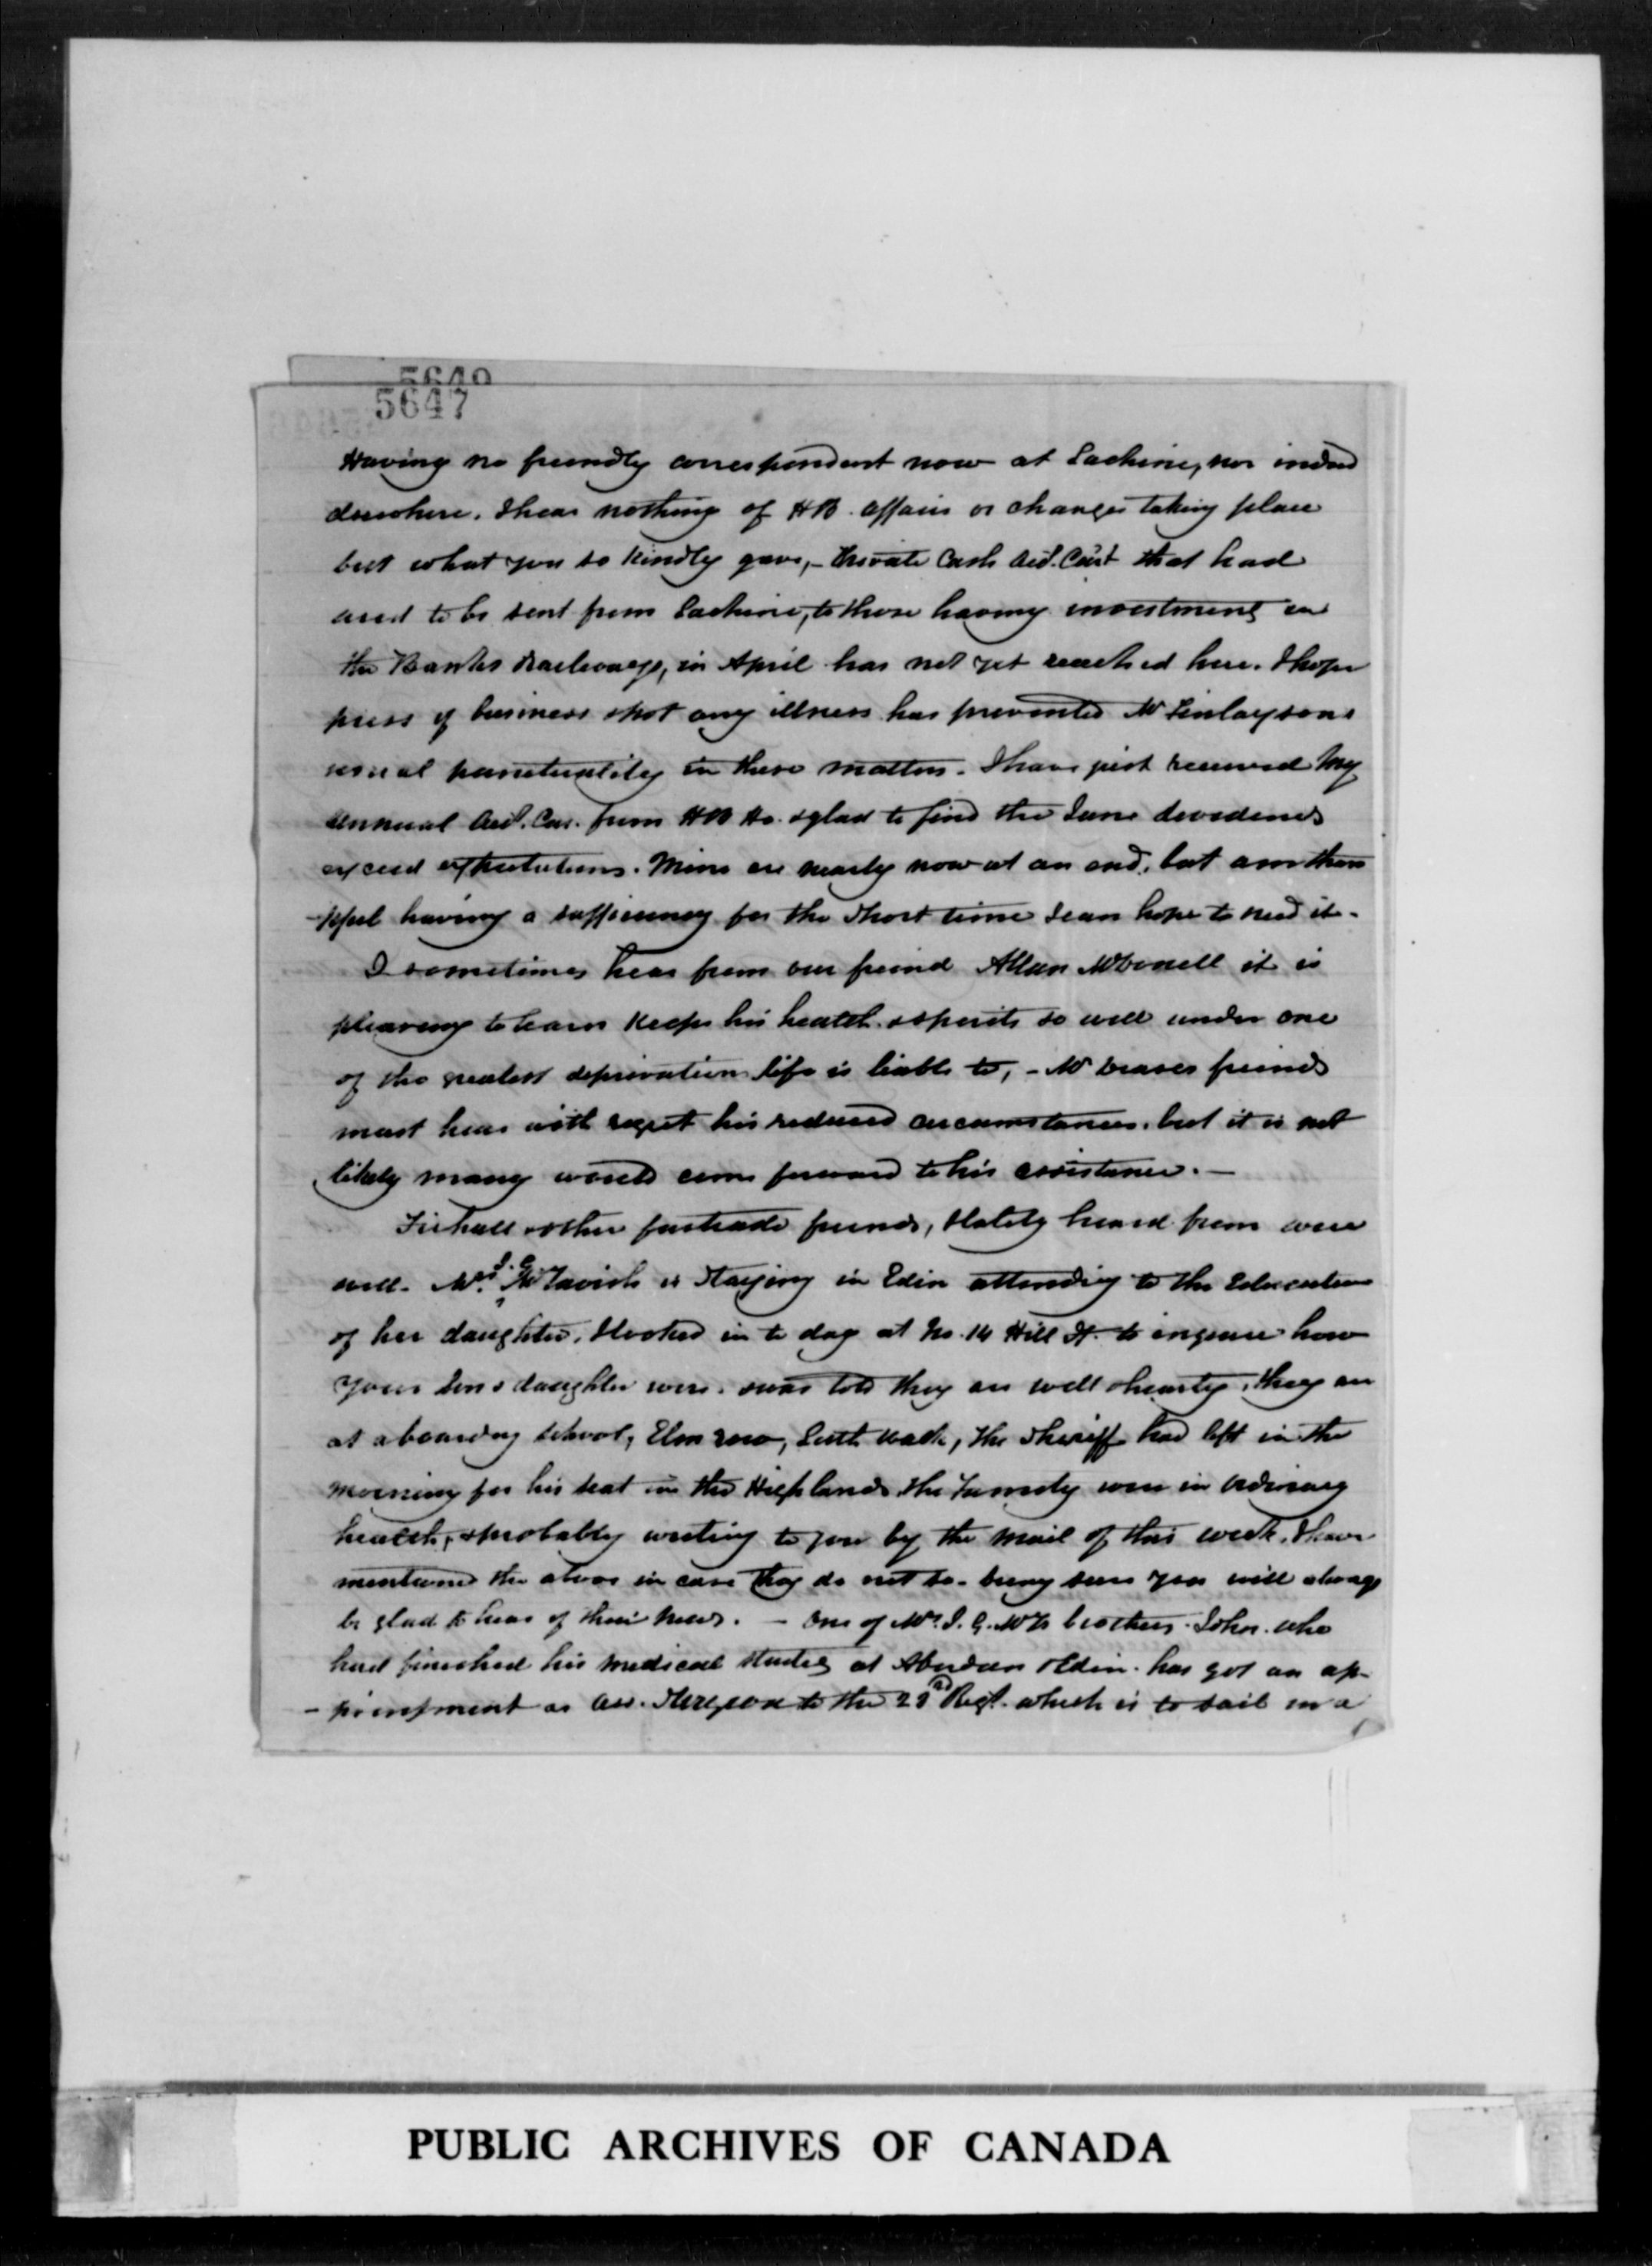 5649
5647
Having no friendly correspondent now at Lachine, nor indeed
elsewhere. I hear nothing of HB. affairs or changes taking place
but what you so kindly gave, - Private Cash Acct. Curt that had
used to be sent from Lachine, to those having investments in
the Banks & railways, in April has not yet reached here. I hope
press of business & not any illness has prevented Mr Finlaysons
usual punctuality in these matters. I have just received my
annual Acct. Cur. from HB Ho. & glad to find the June dividends
exceed expectations. Mine are nearly now at an end, but am than
-kful having a sufficiency for the short time I can hope to need it.
I sometimes hear from our friend Allan McDonell it is
pleasing to learn keeps his health & spirits so well under one
of the greatest deprivation life is liable to, - Mr friends
must hear with regret his reduced circumstances. but it is not
likely many would come forward to his assistance. -
& other furtrade friends, I lately heard from were
well. Mrs. J. G. McTavish is staying in Edin attending to the Education
of her daughter. I looked in to day at No. 14 Hill St. to enquire how
your son & daughter were. & was told they are well & hearty, they are
at a boarding school, Elm row, Leith walk, The Sheriff had left in the
morning for his seat in the Highlands. The Family were in ordinary
health, & probably writing to you by the mail of this week. I have
mentioned the above in case they do not so. being sure you will always
be glad to hear of their news. - One of Mrs. J. G. McTs brothers. John. who
had finished his medical studies at Aberdeen & Edin. has got an ap-
- pointment as Ass. Surgeon to the Regt. which is to sail in a
PUBLIC ARCHIVES OF CANADA